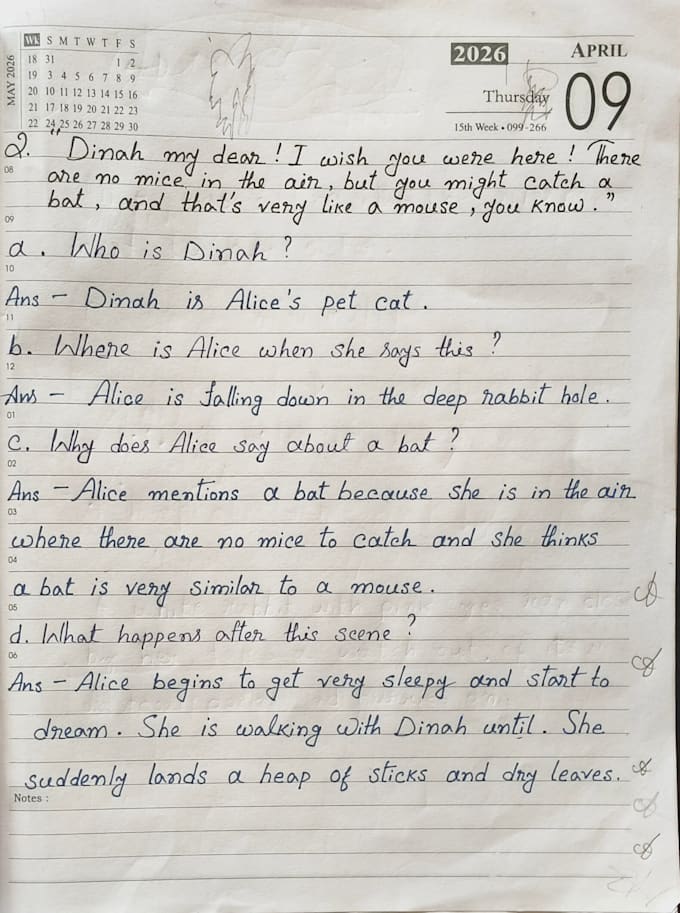 MAY 2026
Wk S M T W T F S
18 31 1 2
19 3 4 5 6 7 8 9
20 10 11 12 13 14 15 16
21 17 18 19 20 21 22 23
22 24 25 26 27 28 29 30
2026 APRIL
Thursday 09
15th Week • 099-266
2. "Dinah my dear! I wish you were here! There
08
are no mice in the air, but you might catch a
bat, and that's very like a mouse, you know."
09
a. Who is Dinah?
10
Ans - Dinah is Alice's pet cat.
11
b. Where is Alice when she says this?
12
Ans - Alice is falling down in the deep rabbit hole.
01
c. Why does Alice say about a bat?
02
Ans - Alice mentions a bat because she is in the air
03
where there are no mice to catch and she thinks
04
a bat is very similar to a mouse.
05
d. What happens after this scene?
06
Ans - Alice begins to get very sleepy and start to
dream. She is walking with Dinah until. She
suddenly lands a heap of sticks and dry leaves.
Notes :